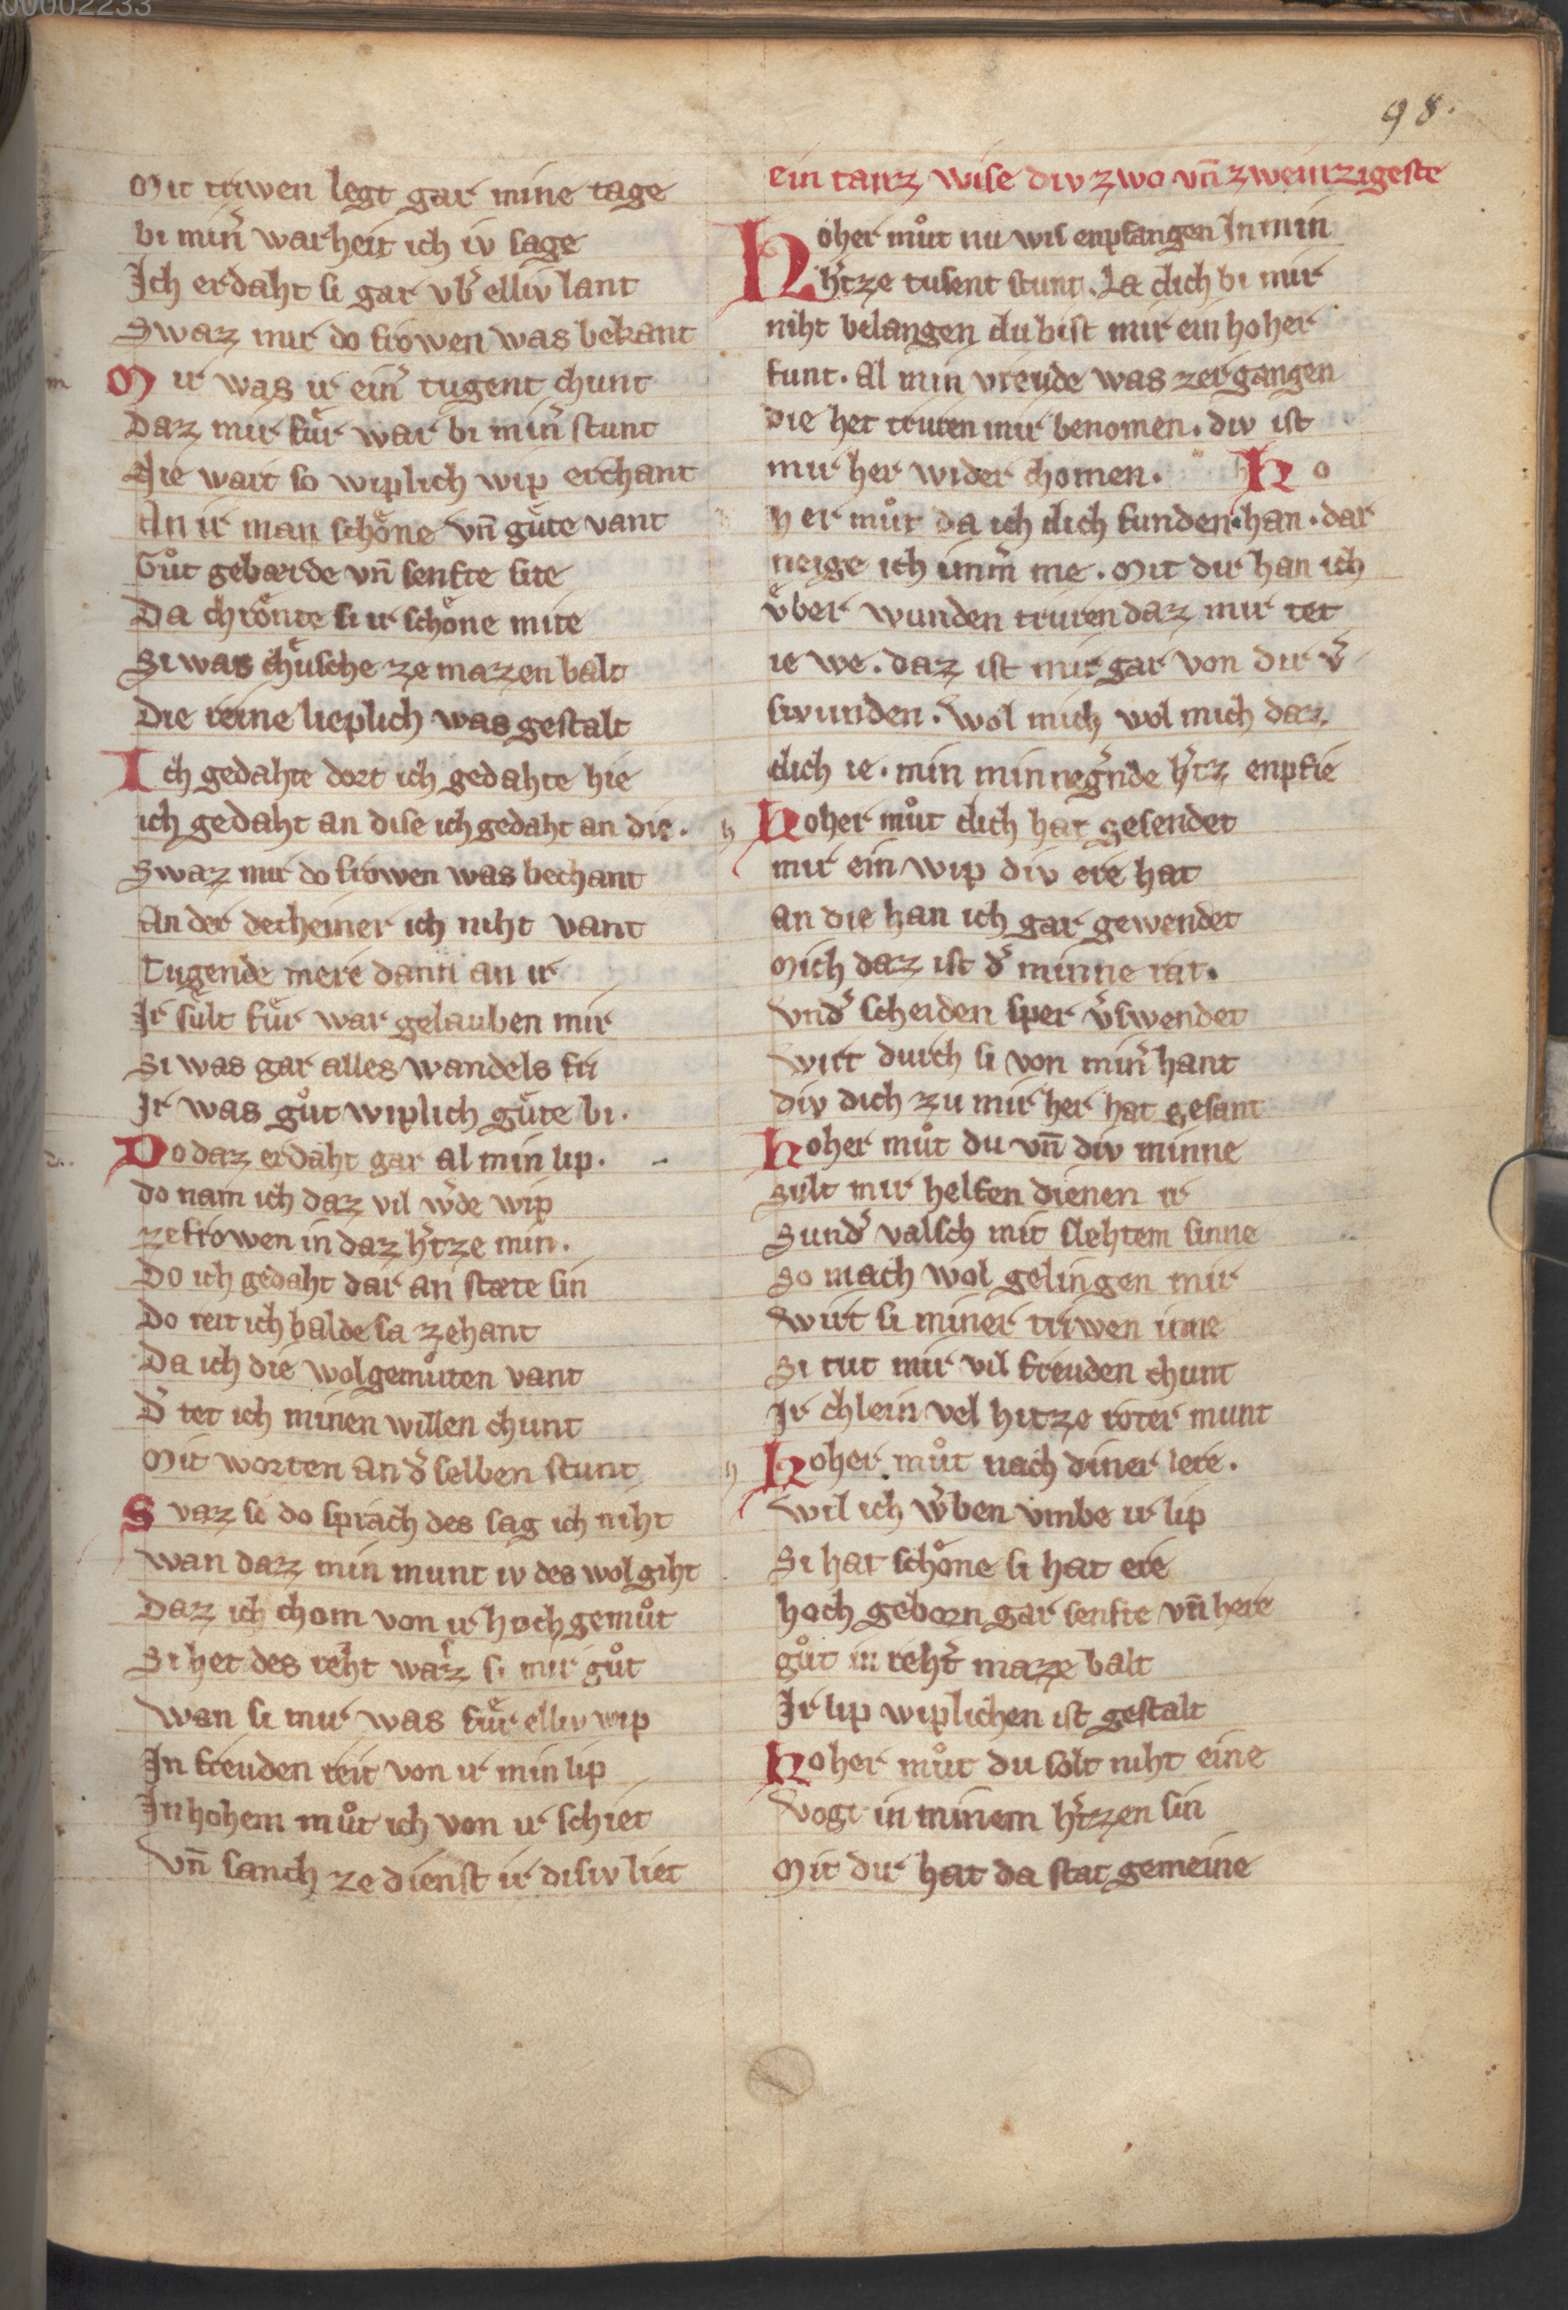 00002233
98.
Mit triwen legt gar mine tage
bi min̄ warheit ich iv sage
Ich erdaht si gar vb̄ elliv lant
Swaz mir do frowen was bekant
m Mir was ir ein̄ tugent chunt
Daz mir fuͤr war bi min̄ stunt
Nie wart so wiplich wip erchant
An ir man schoͤne vn̄ guͤte vant
Guͦt gebærde vn̄ senfte site
Da chroͤnte si ir schoͤne mite
Si was chuͤsche ze mazen balt
Die reine lieplich was gestalt
Ich gedahte dort ich gedahte hie
ich gedaht an dise ich gedaht an die.
Swaz mir do frowen was bechant
An der decheiner ich niht vant
Tugende mere dann an ir
Ir suͤlt fuͤr war gelauben mir
Si was gar alles wandels fri
Ir was guͦt wiplich guͤte bi.
d.. Do daz erdaht gar al min lip.
do nam ich daz vil w̄de wip
ze frowen in daz h̄tze min.
Do ich gedaht dar an stæte sin
Do reit ich balde sa zehant
Da ich die wolgemuͦten vant
D̄ tet ich minen willen chunt
Mit worten an d̄ selben stunt
Swaz si do sprach des sag ich niht
wan daz min munt iv des wol giht
Daz ich chom von ir hoch gemuͦt
Si het des reht waꝛz si mir guͦt
wan si mir was fuͤr elliv wip
In freuden reit von ir min lip
In hohem muͦt ich von ir schiet
vn̄ sanch ze dienst ir disiv liet
ein tanz wise div zwo vn̄ zweinzigeste
Hoher muͦt nu wis enpfangen In min
h̄tze tusent stunt. La dich bi mir
niht belangen du bist mir ein hoher
funt. Al min vreude was zergangen
die het truren mir benomen. div ist
mir her wider chomen. Ho
her muͦt da ich dich funden han. dar
neige ich imm̄ me. Mit dir han ich
vͤber wunden truren daz mir tet
ie we. daz ist mir gar von dir v̄
swunden. wol mich wol mich daz
dich ie. min minneḡnde h̄tz enpfie
h Hoher muͦt dich hat gesendet
mir ein wip div ere hat
an die han ich gar gewendet
Mich daz ist d̄ minne rat.
vnd̄ scheiden sper v̄swendet
wirt durch si von min̄ hant
div dich zu mir her hat gesant
Hoher muͦt du vn̄ div minne
Sult mir helfen dienen ir
Sund̄ valsch mit slehtem sinne
So mach wol gelingen mir
wirt si miner triwen inne
Si tut mir vil freuden chunt
Ir chlein vel hitze roter munt
h Hoher muͦt nach diner lere.
wil ich w̄ben vmbe ir lip
Si hat schoͤne si hat ere
hoch geborn gar senfte vn̄ here
guͦt in reht̄ mazze balt
Ir lip wiplichen ist gestalt
Hoher muͦt du solt niht eine
vogt in minem h̄tzen sin
Mit dir hat da stat gemeine